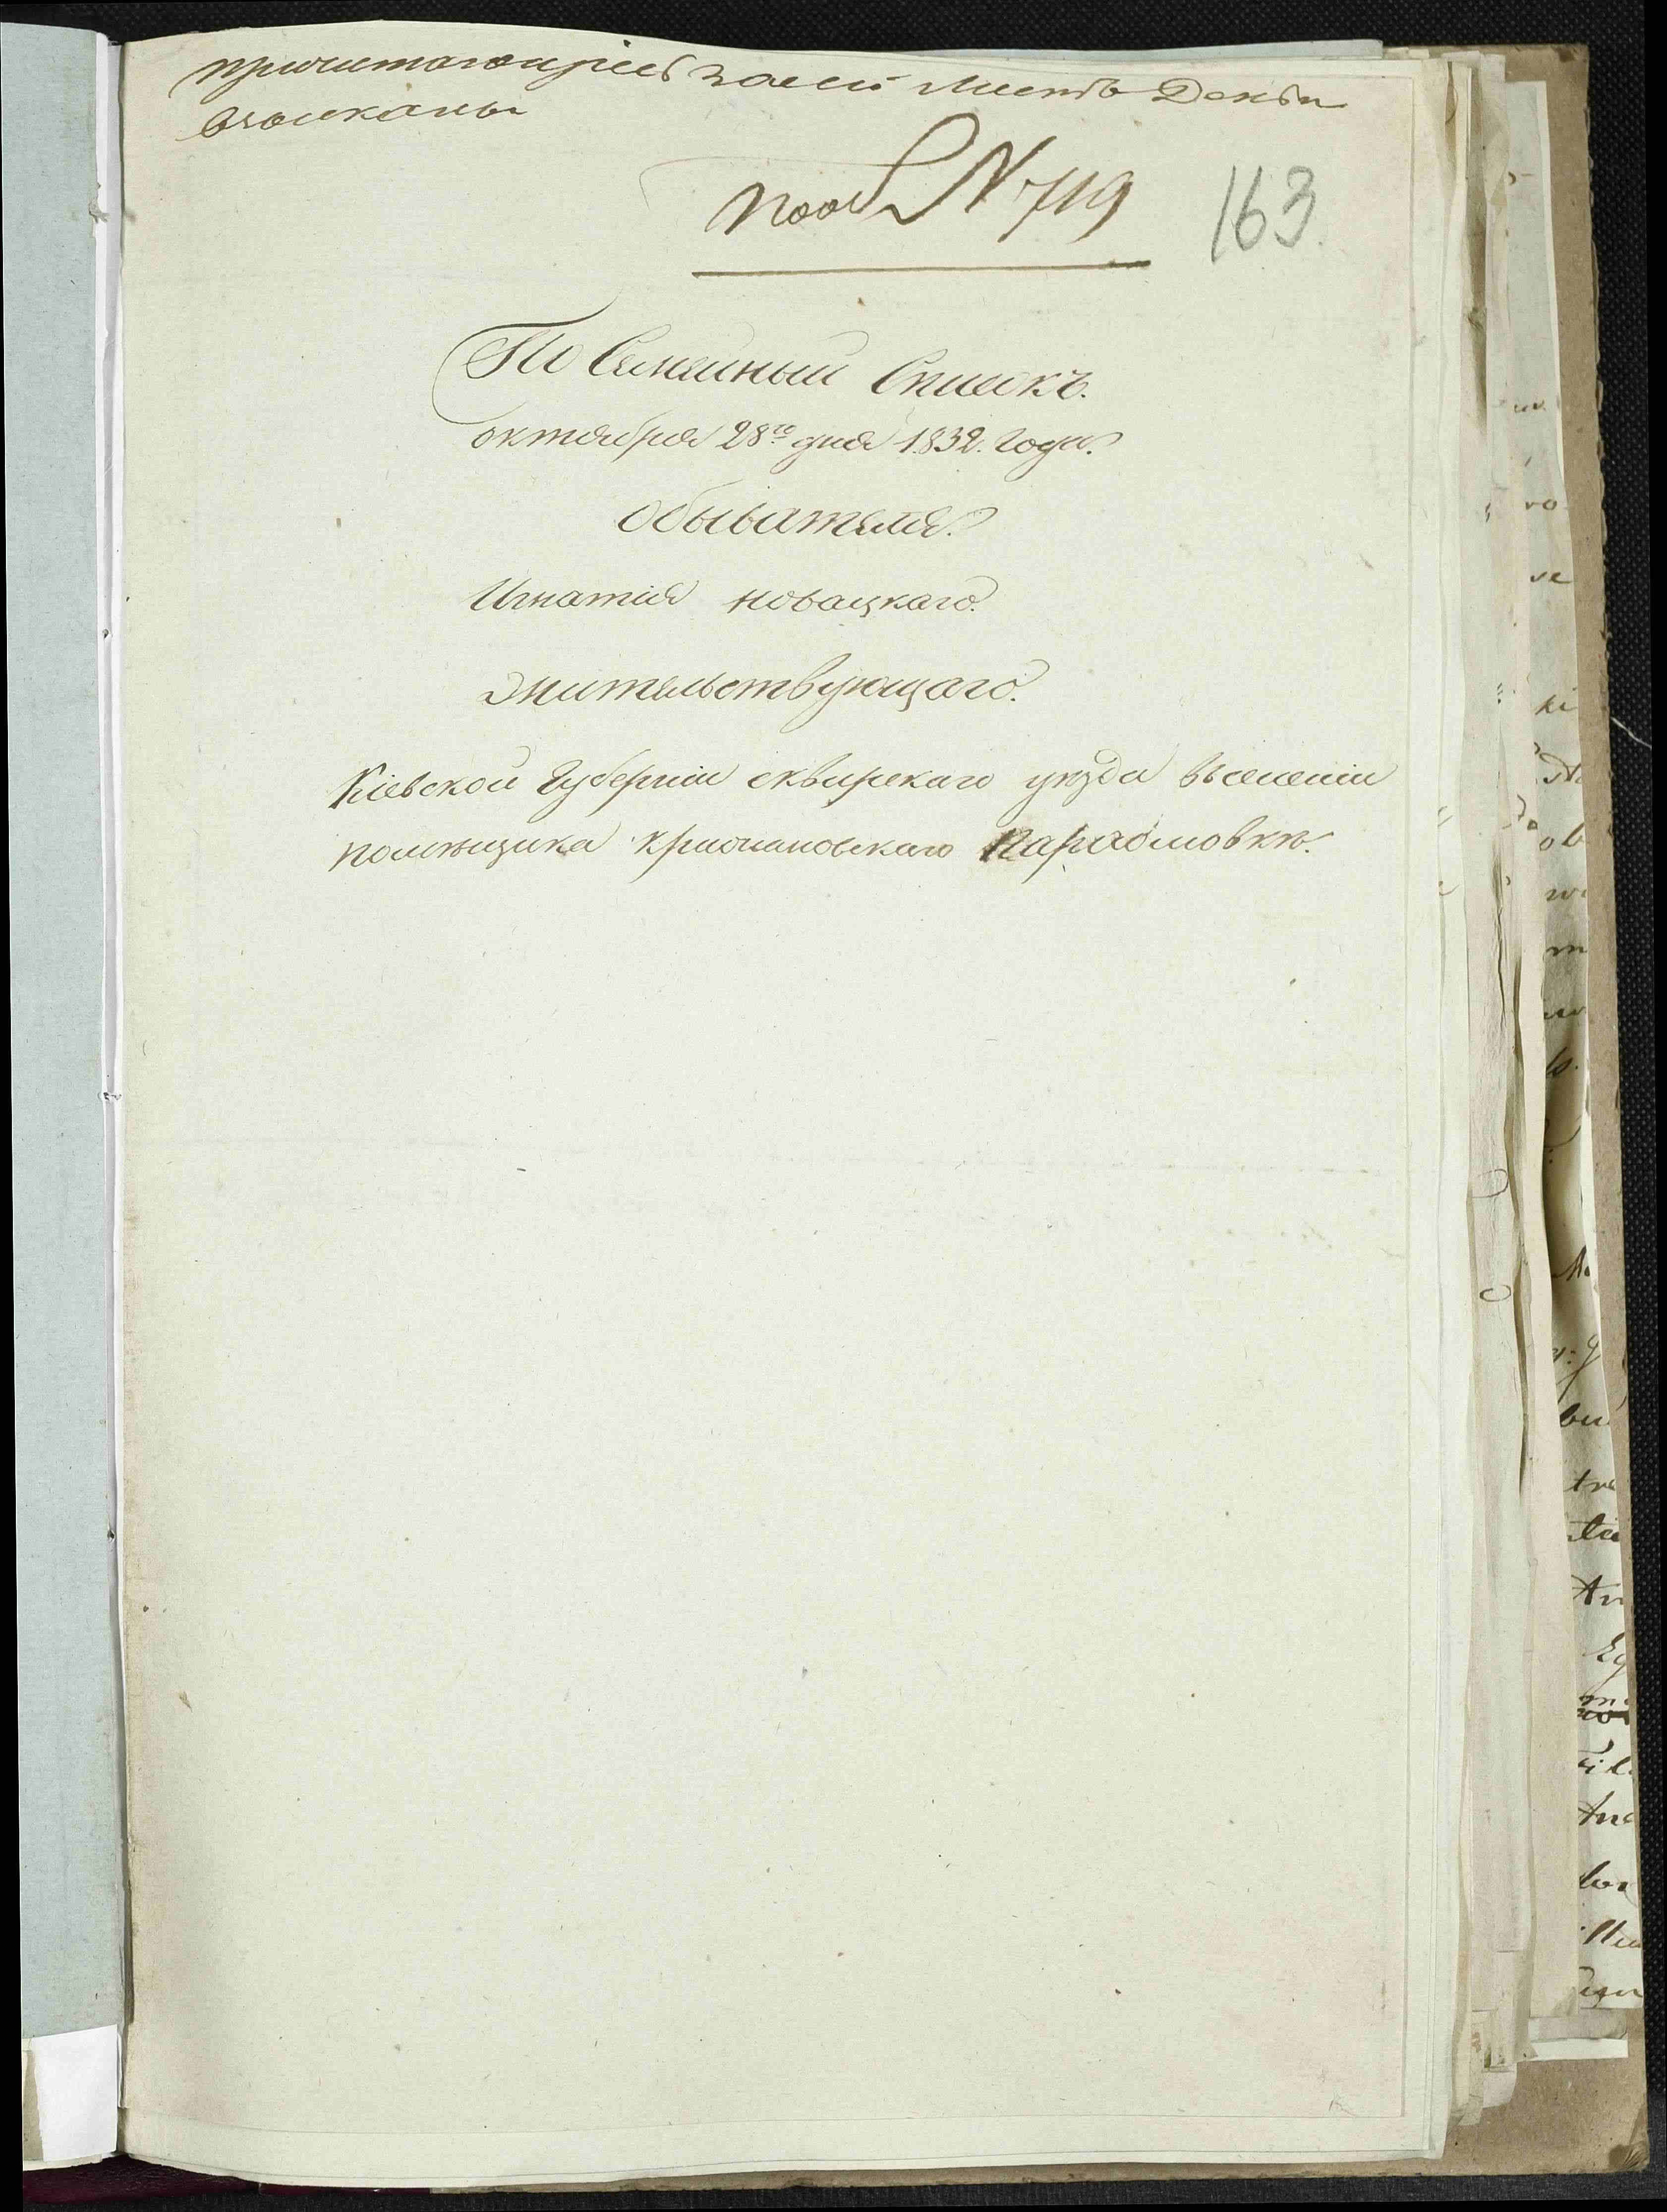 причитающіесь за сей Листъ Деньги
взысканы
под № 719
163
По Семейный Списокъ.
октября 28го дня 1832. Года.
Обывателя.
Игнатія новацкаго.
жительствующаго.
Кіевской Губерніи сквирскаго уезда вселеніи
помещика